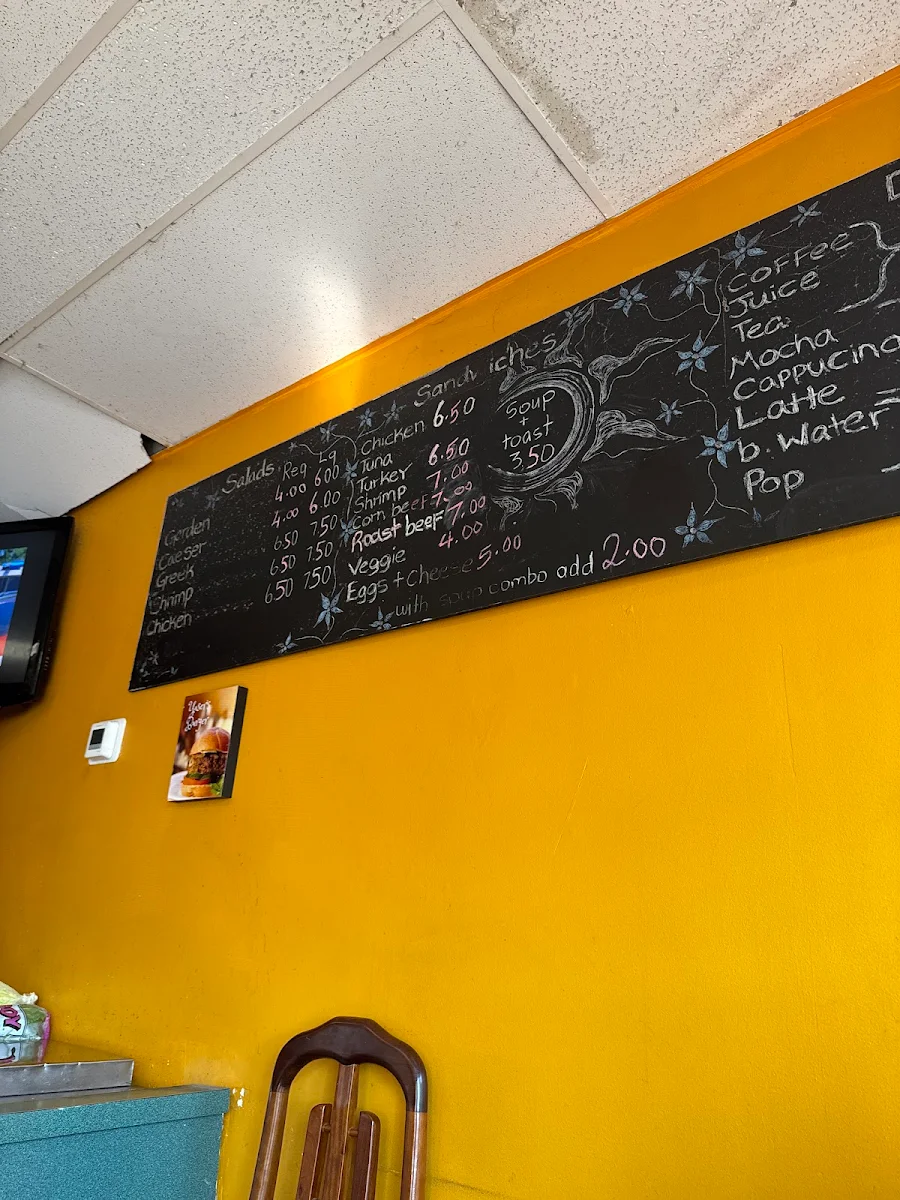 Salads Reg Lg
Garden 4.00 6.00
Caeser 4.00 6.00
Greek 6.50 7.50
Shrimp 6.50 7.50
Chicken 6.50 7.50
Sandwiches
Chicken 6.50
Tuna
Turkey 6.50
Shrimp 7.00
Corn beef 7.00
Roast beef 7.00
Veggie 4.00
Eggs + cheese 5.00
with soup combo add 2.00
Soup
+
toast
3.50
Coffee
Juice
Tea
Mocha
Cappucino
Latte
b. Water
Pop